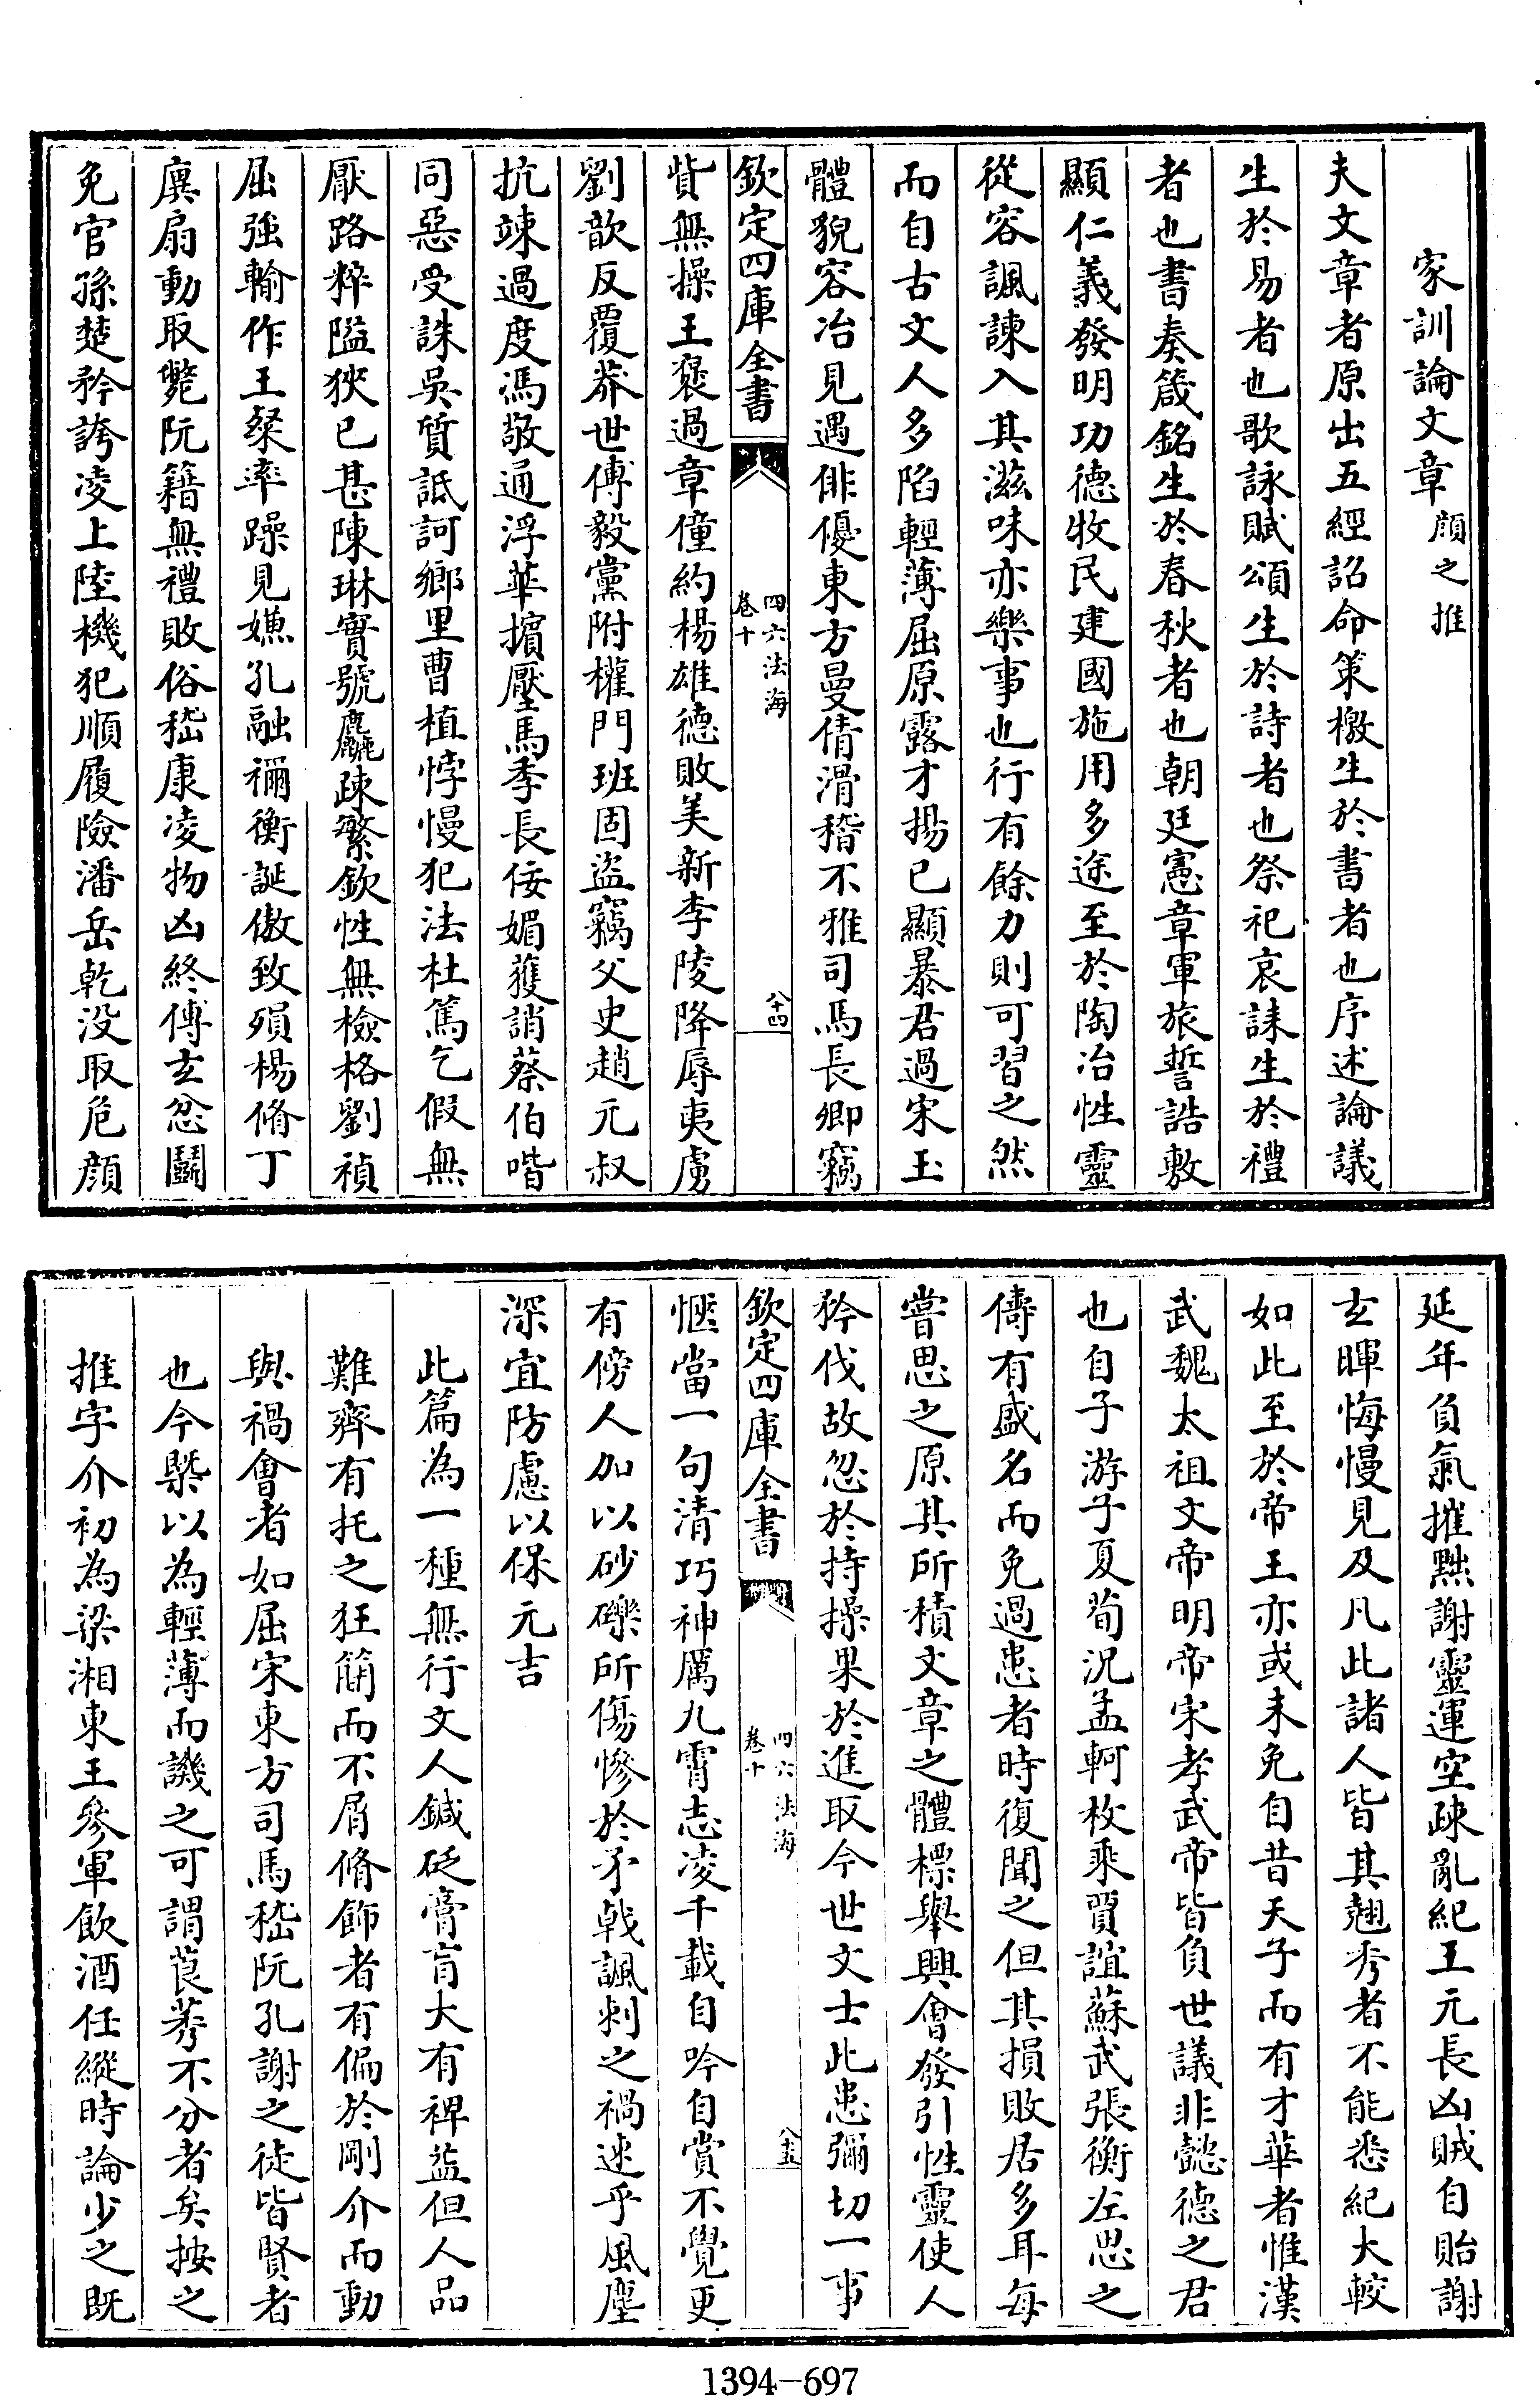 家訓論文章顔之推
夫文章者原出五經詔命策檄生於書者也序述論議
生於易者也歌詠賦頌生於詩者也祭祀哀誄生於禮
者也書奏箴銘生於春秋者也朝廷憲章軍旅誓誥敷
顯仁義發明功德牧民建國施用多途至於陶冶性靈
從容諷諫入其滋味亦樂事也行有餘力則可習之然
而自古文人多陷輕薄屈原露才揚已顯暴君過宋玉
體貌容冶見遇俳優東方曼倩滑稽不雅司馬長卿竊
欽定四庫全書
四六法海
卷十
八十四
貲無操王褒過章僮約楊雄德敗美新李陵降辱夷虜
劉歆反覆莽世傅毅黨附權門班固盜竊父史趙元叔
抗竦過度馮敬通浮華擯壓馬季長佞媚獲誚蔡伯喈
同惡受誅吳質詆訶鄉里曹植悖慢犯法杜篤乞假無
厭路粹隘狹已甚陳琳實號麤疎繁欽性無檢格劉禎
屈強輸作王粲率躁見嫌孔融禰衡誕傲致殞楊脩丁
廙扇動取斃阮籍無禮敗俗嵇康凌物凶終傅玄忿鬭
免官孫楚矜誇凌上陸機犯順履險潘岳乾没取危顔
延年負氣摧黜謝靈運空疎亂紀王元長凶賊自貽謝
玄暉悔慢見及凡此諸人皆其翹秀者不能悉紀大較
如此至於帝王亦或未免自昔天子而有才華者惟漢
武魏太祖文帝明帝宋孝武帝皆負世議非懿德之君
也自子游子夏荀況孟軻枚乘賈誼蘇武張衡左思之
儔有盛名而免過患者時復聞之但其損敗居多耳每
嘗思之原其所積文章之體標舉興會發引性靈使人
矜伐故忽於持操果於進取今世文士此患彌切一事
欽定四庫全書
四六法海
卷十
八十五
愜當一句清巧神厲九霄志凌千載自吟自賞不覺更
有傍人加以砂礫所傷慘於矛戟諷刺之禍速乎風塵
深宜防慮以保元吉
此篇為一種無行文人鍼砭膏肓大有裨益但人品
難齊有托之狂簡而不屑脩飾者有偏於剛介而動
與禍會者如屈宋東方司馬嵇阮孔謝之徒皆賢者
也今槩以為輕薄而譏之可謂莨莠不分者矣按之
推字介初為梁湘東王參軍飲酒任縱時論少之既
1394-697